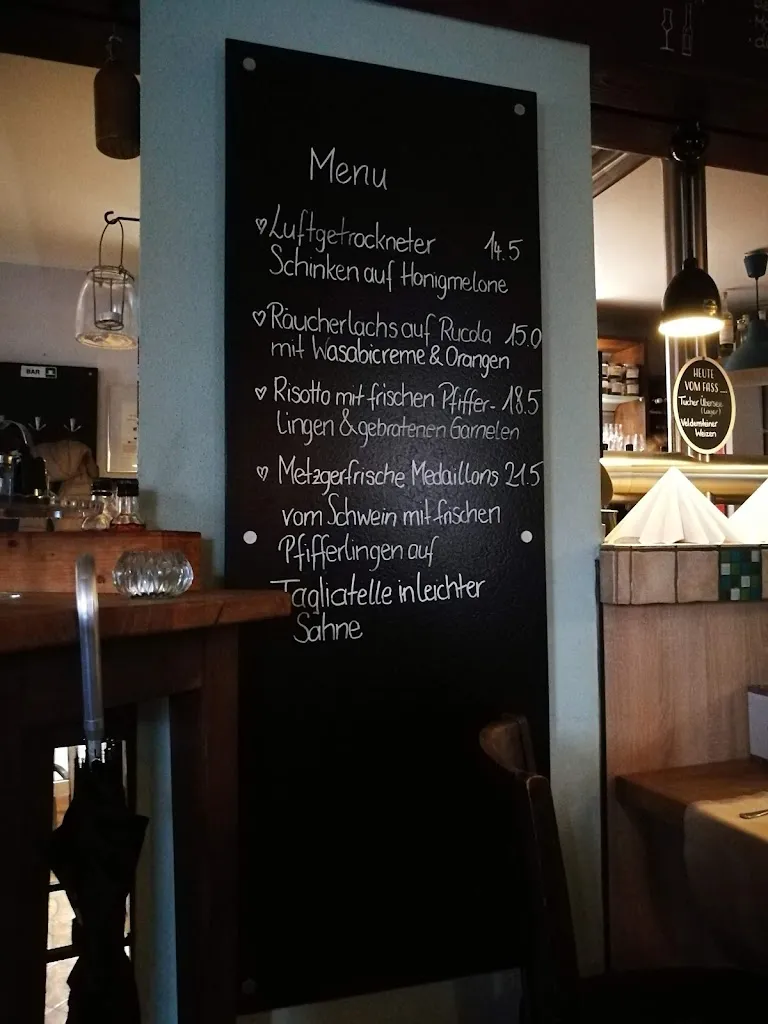 Menu
♡ Luftgetrockneter 14.5
Schinken auf Honigmelone
♡ Räucherlachs auf Rucola 15.0
mit Wasabicreme & Orangen
♡ Risotto mit frischen Pfiffer- 18.5
lingen & gebratenen Garnelen
♡ Metzgerfrische Medaillons 21.5
vom Schwein mit frischen
Pfifferlingen auf
Tagliatelle in leichter
Sahne
BAR
HEUTE
VOM FASS...
Tucher Übersee
(Lager)
Veldensteiner
Weizen